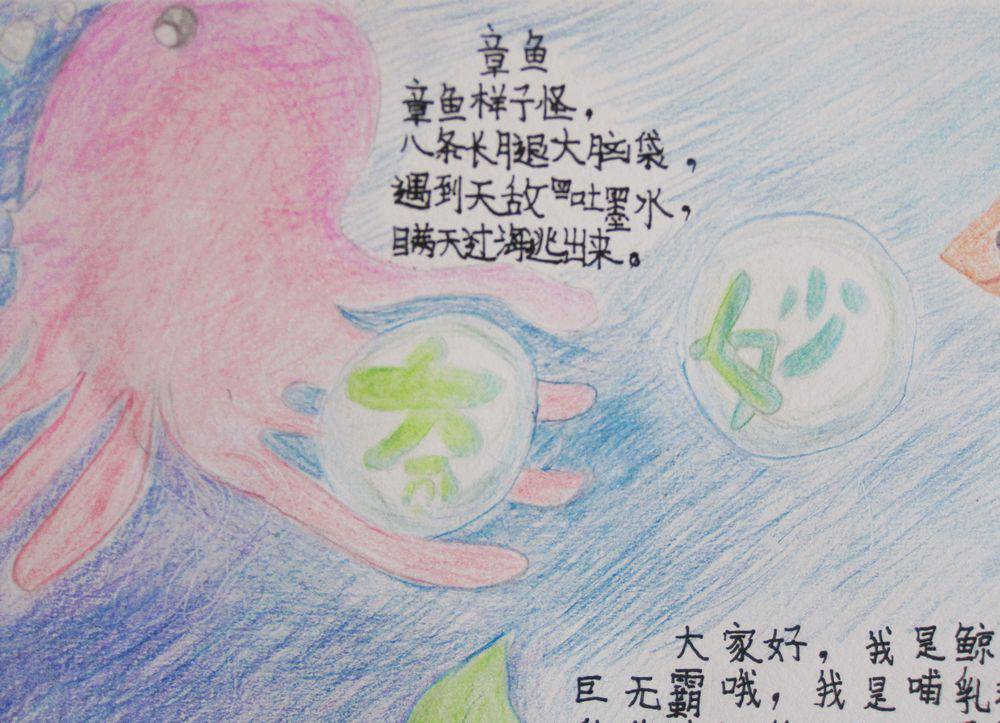 章鱼
章鱼样子怪，
八条长腿大脑袋，
遇到天敌吐墨水，
瞒天过海逃出来。
奇
妙
大家好，我是鲸
巨无霸哦，我是哺乳